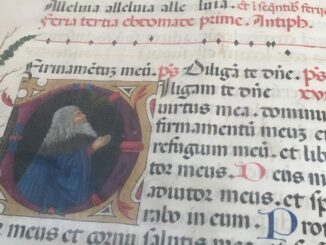 Alleluia alleluia alle luia. et
feria tertia ebdomade prime. Antiph.
Firmamētuz meū. ps Diligā te dn̄e. ps
iligam te dn̄e
uirtus mea.
firmamentū meuz et
refugium meū. et lib
tor meus. D
adiutor meus et sp
rabo in eum. Pro
meus et cornu salutis